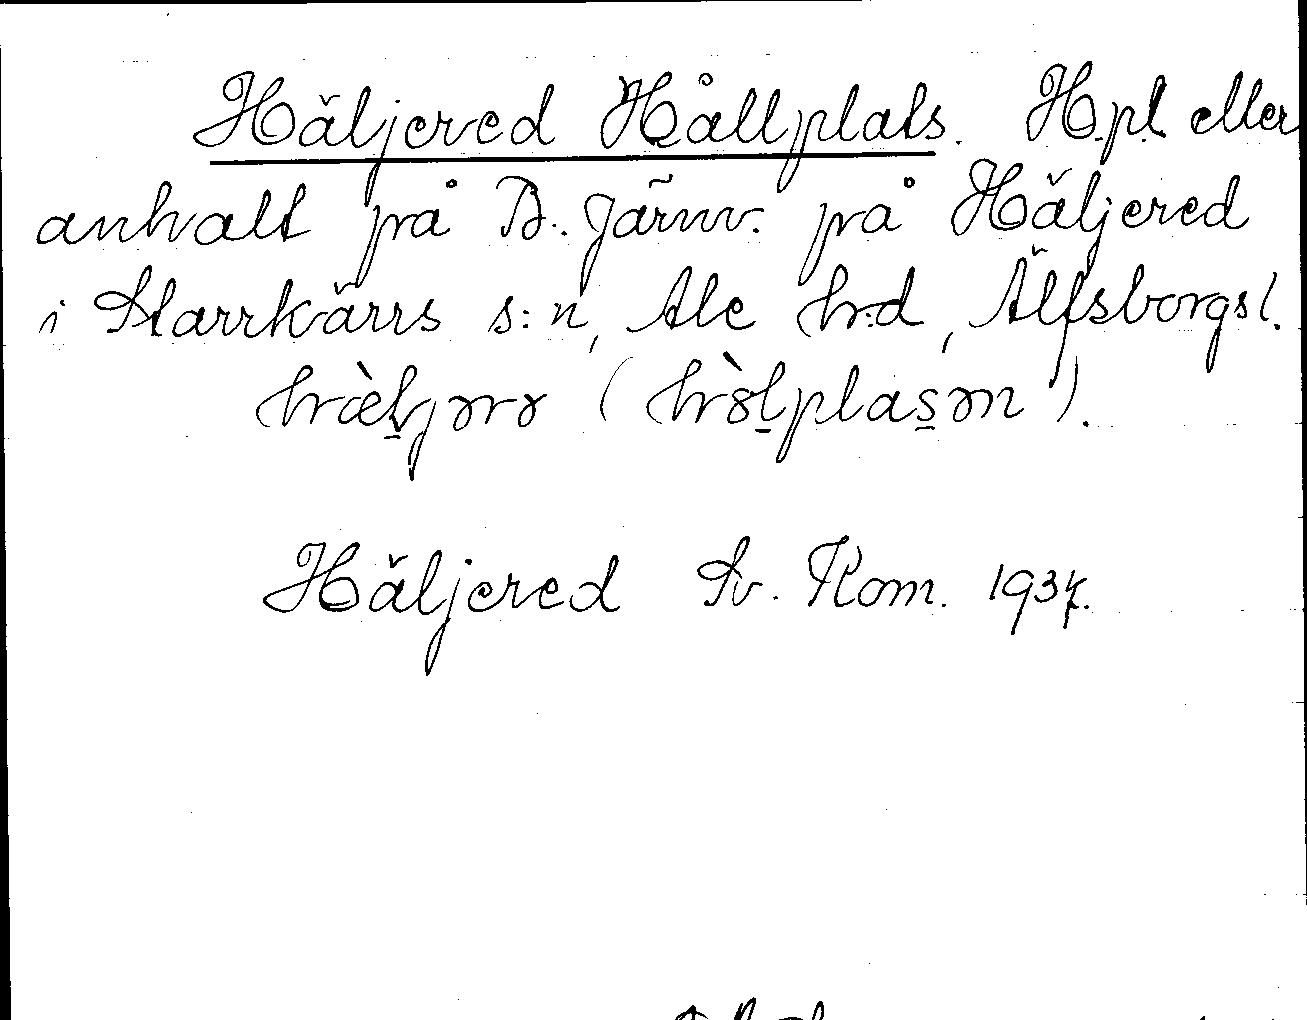 Häljered Hållplats. H.pl. eller
anhalt på B. Järnv. på Häljered
i Starrkärrs s:n, Ale h:d, Älfsborgs l.
hæ̀ljərə (hòlplasən).
Häljered Sv. Kom. 1937.